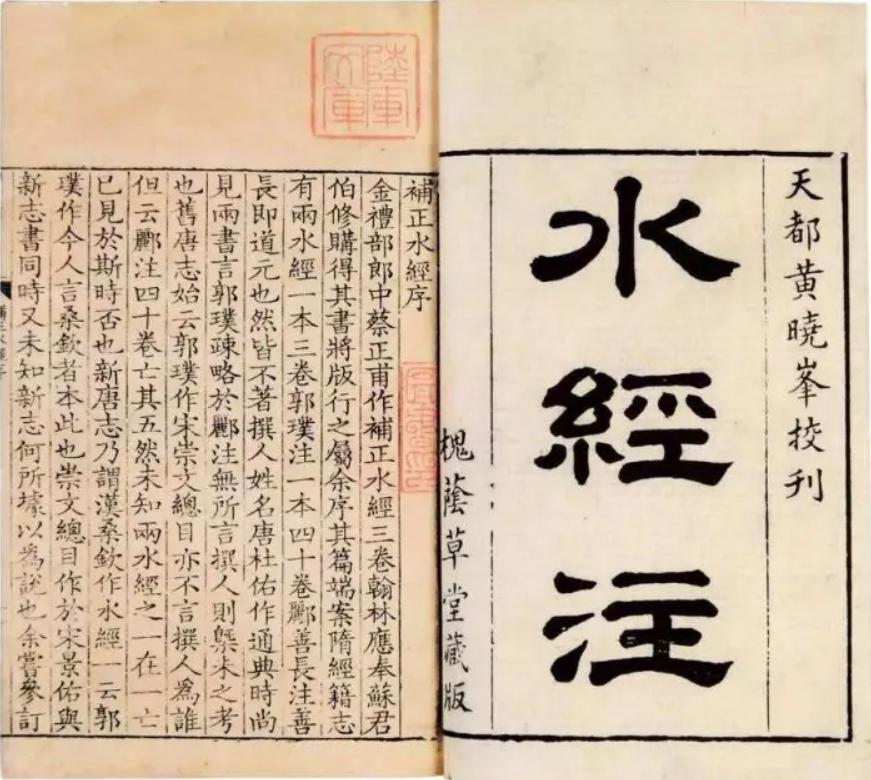 天都黄曉峯挍刊
水經注
槐蔭草堂藏版
補正水經序
金禮部郎中蔡正甫作補正水經三卷翰林應奉蘇君
伯修購得其書將版行之屬余序其篇端案隋經籍志
有兩水經一本三卷郭璞注一本四十卷酈善長注善
長即道元也然皆不著撰人姓名唐杜佑作通典時尚
見兩書言郭璞疎略於酈注無所言撰人則槩未之考
也舊唐志始云郭璞作宋崇文總目亦不言撰人為誰
但云酈注四十卷亡其五然未知兩水經之一在一亡
已見於斯時否也新唐志乃謂漢桑欽作水經一云郭
璞作今人言桑欽者本此也崇文總目作於宋景佑與
新志書同時又未知新志何所㨿以為說也余嘗參訂
陸軍